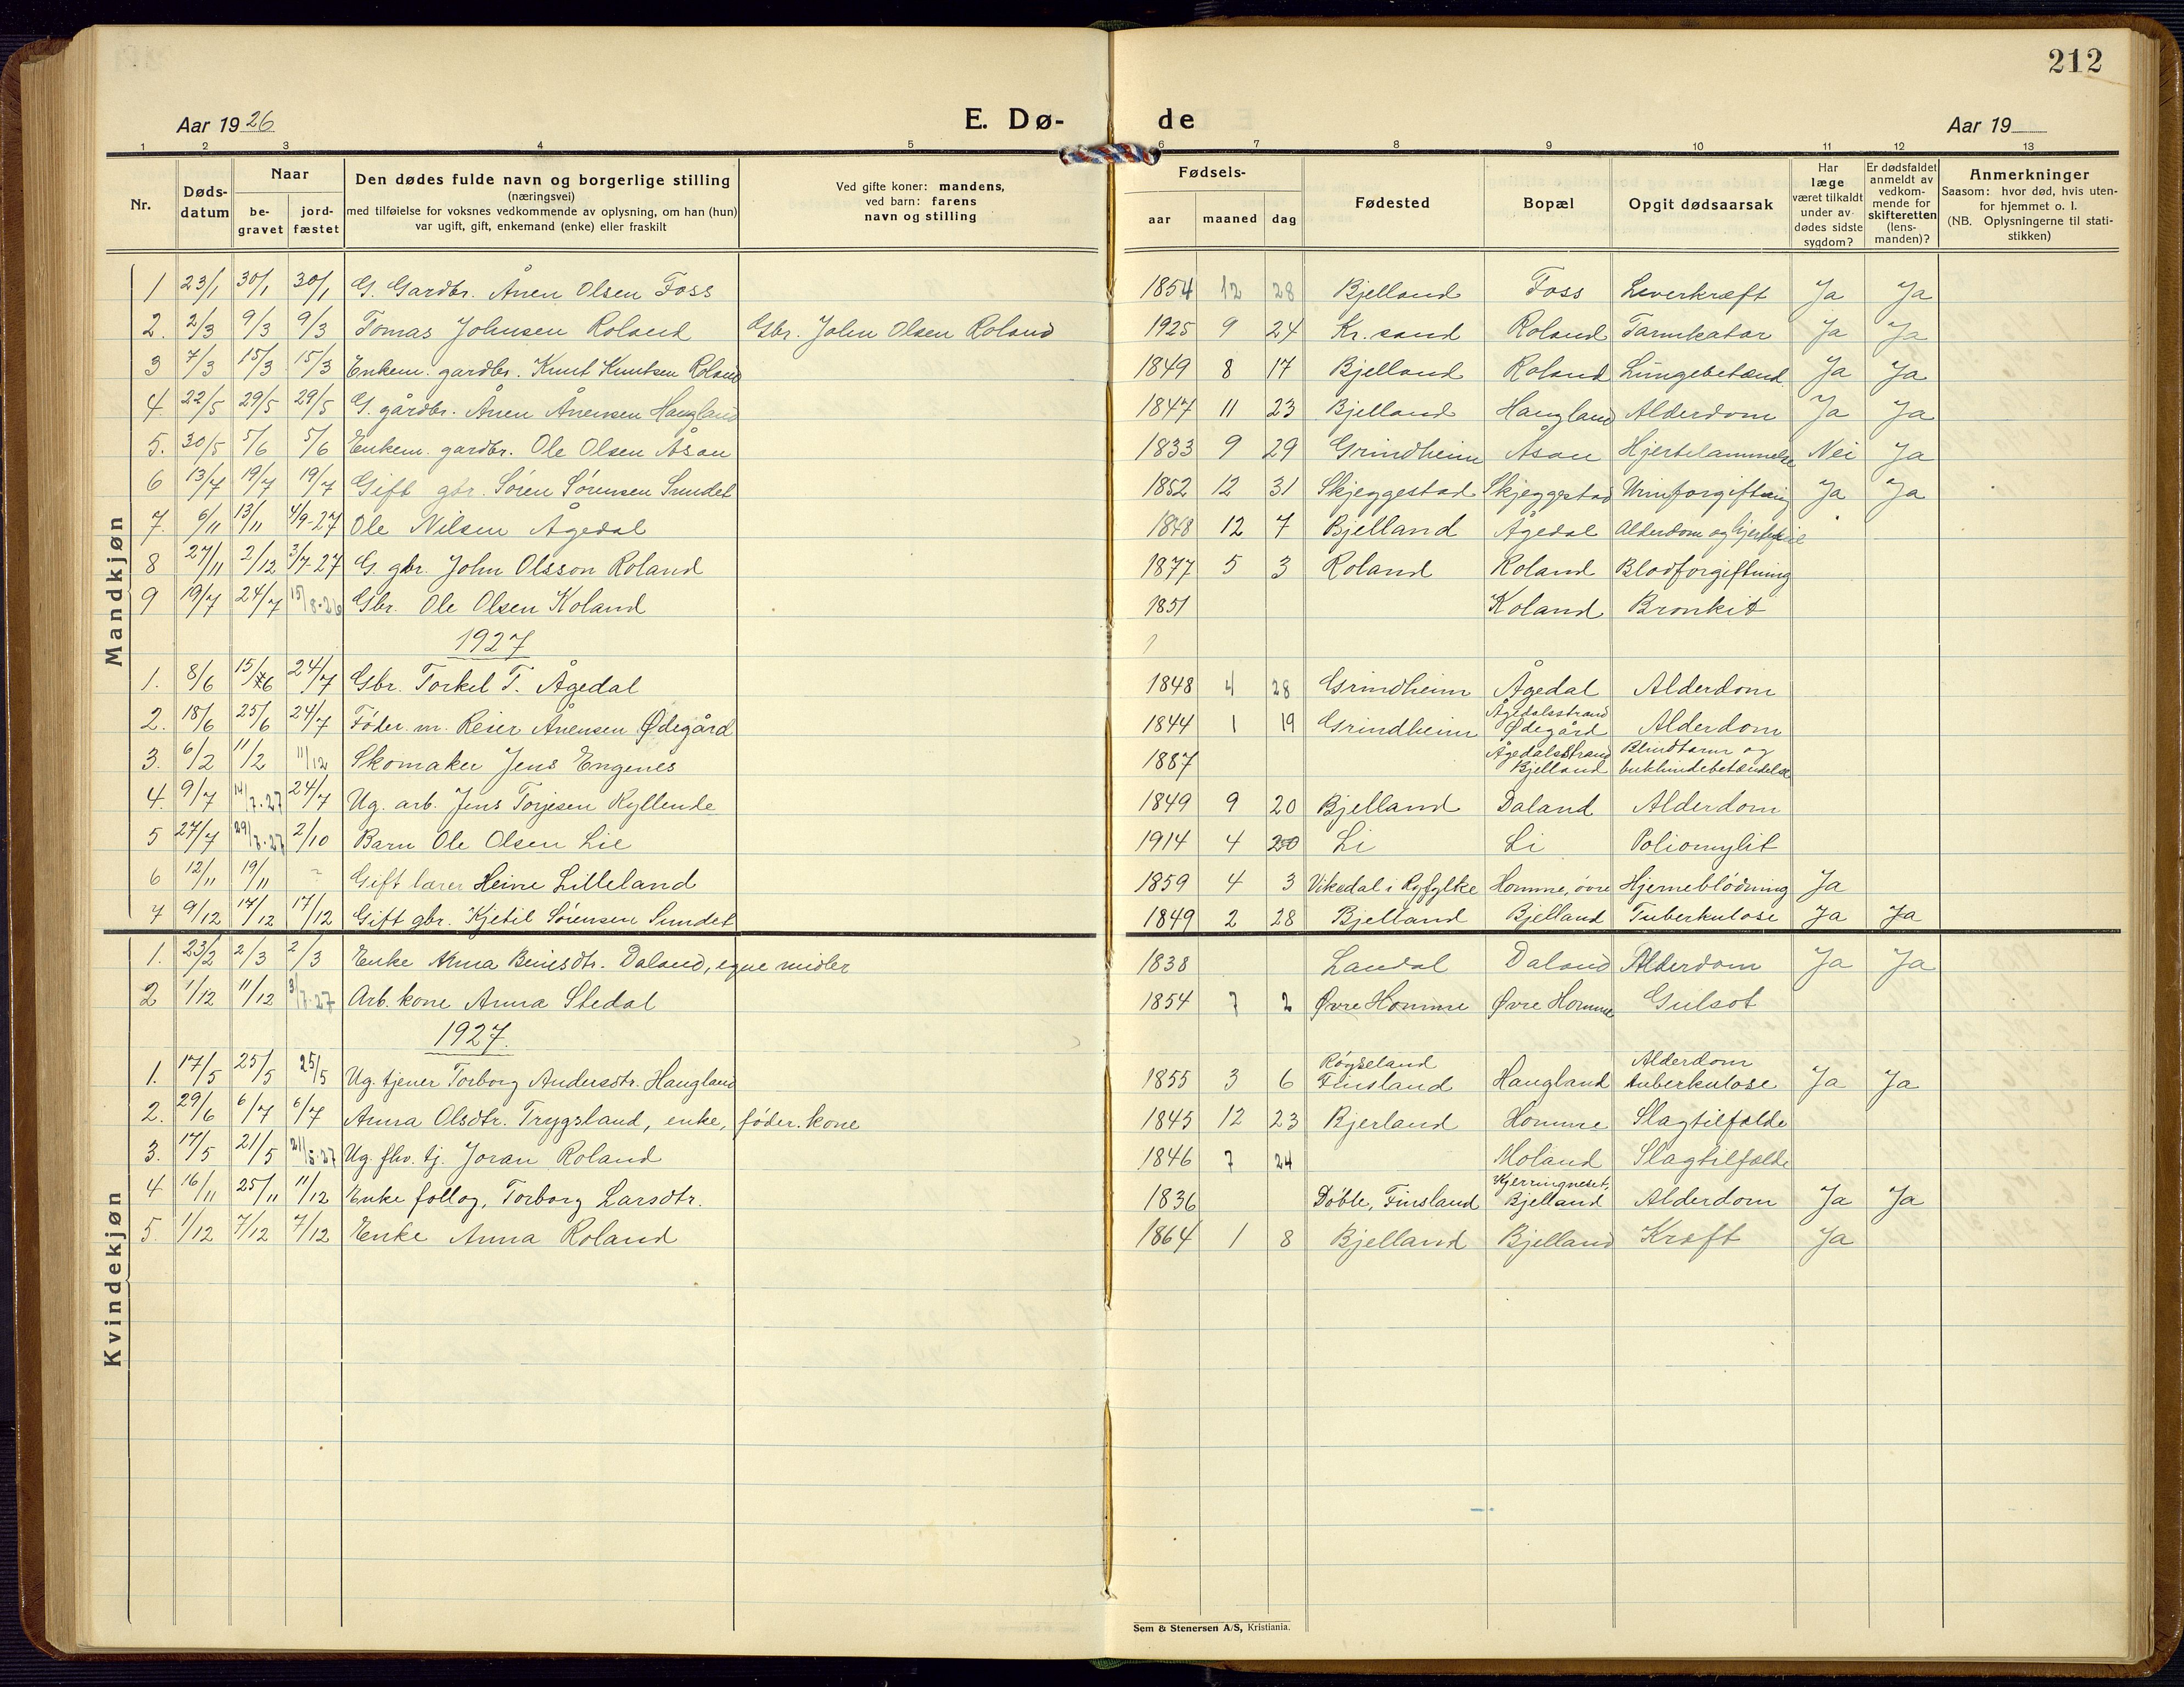 212
Aar 1926 E. Dø- de Aar 19
1 2 3 4 5 6 7 8 9 10 11 12 13
Nr. Døds-datum Naar be-gravet jord-fæstet Den dødes fulde navn og borgerlige stilling (næringsvei) med tilføielse for voksnes vedkommende av oplysning, om han (hun) var ugift, gift, enkemand (enke) eller fraskilt Ved gifte koner: mandens, ved barn: farens navn og stilling Fødsels- aar maaned dag Fødested Bopæl Opgit dødsaarsak Har læge været tilkaldt under av-dødes sidste sygdom? Er dødsfaldet anmeldt av vedkom-mende for skifteretten (lens-manden)? Anmerkninger Saasom: hvor død, hvis uten-for hjemmet o. l. (NB. Oplysningerne til stati-stikken)
Mandkjøn
1 23/1 30/1 30/1 G. Gardbr. Ånen Olsen Foss 1854 12 28 Bjelland Foss Leverkræft Ja Ja
2. 2/3 9/3 9/3 Tomas Johnsen Roland Gbr. John Olsen Roland 1925 9 24 Kr.sand Roland Tarmkatar Ja Ja
3 7/3 15/3 15/3 Enkem. gardbr. Knut Knutsen Roland 1849 8 17 Bjelland Roland Lungebetænd Ja Ja
4. 22/5 29/5 29/5 G. gårdbr. Ånen Ånensen Haugland 1847 11 23 Bjelland Haugland Alderdom Ja Ja
5. 30/5 5/6 5/6 Enkem. gardbr. Ole Olsen Åsan 1833 9 29 Grindheim Åsan Hjertelammelse Nei Ja
6 13/7 19/7 19/7 Gift gbr. Sören Sörensen Sundet 1852 12 31 Skjeggestad Skjeggestad Urinforgiftning Ja Ja
7. 6/11 13/11 4/9-27 Ole Nilsen Ågedal 1848 12 7 Bjelland Ågedal Alderdom og hjertefeil
8 27/11 2/12 3/7-27 G. gbr. John Olsson Roland 1877 5 3 Roland Roland Blodforgiftning
9 19/7 24/7 15/8-26 Gbr. Ole Olsen Koland 1851 Koland Bronkit
1927
1. 8/6 15/6 24/7 Gbr. Torkel T. Ågedal 1848 4 28 Grindheim Ågedal Alderdom
2. 18/6 25/6 24/7 Föder.m. Reier Ånensen Ødegård 1844 1 19 Grindheim Ågedalsstrand Ødegård Alderdom
3. 6/2 11/2 11/12 Skomaker Jens Engenes 1887 Ågedalsstrand Bjelland Blindtarm og bukhindebetændelse
4. 9/7 14/7-27 24/7 Ug. arb. Jens Torjesen Kyllende 1849 9 20 Bjelland Daland Alderdom
5 27/7 29/7-27 2/10 Barn Ole Olsen Lie 1914 4 20 Li Li Poliomylit
6 12/11 19/11 ? Gift lærer Heine Lilleland 1859 4 3 Vikedal i Ryfylke Homme, övre Hjerneblödning Ja
7 9/12 17/12 17/12 Gift gbr. Kjetil Sörensen Sundet 1849 2 28 Bjelland Bjelland Tuberkulose Ja Ja
Kvindekjøn
1. 23/2 2/3 2/3 Enke Anna Beintsdtr. Daland, egne midler 1838 Laudal Daland Alderdom Ja Ja
2 1/12 11/12 3/7-27 Arb.kone Anna Stedal 1854 7 2 Øvre Homme Øvre Homme Gulsot
1927.
1. 17/5 25/5 25/5 Ug. tjener Torborg Andersdtr. Haugland 1855 3 6 Röyseland Finsland Haugland Alderdom tuberkulose Ja Ja
2. 29/6 6/7 6/7 Anna Olsdtr. Trygsland, enke, föder.kone 1845 12 23 Bjerland Homme Slagtilfælde
3. 17/5 21/5 21/5-27 Ug. fhv. tj. Joran Roland 1846 7 24 Moland Slagtilfælde
4 16/11 25/11 11/12 Enke follog, Torborg Larsdtr. 1836 Döble, Finsland Kjerringneset, Bjelland Alderdom Ja Ja
5. 1/12 7/12 7/12 Enke Anna Roland 1864 1 8 Bjelland Bjelland Kræft Ja
Sem & Stenersen A/S, Kristiania.